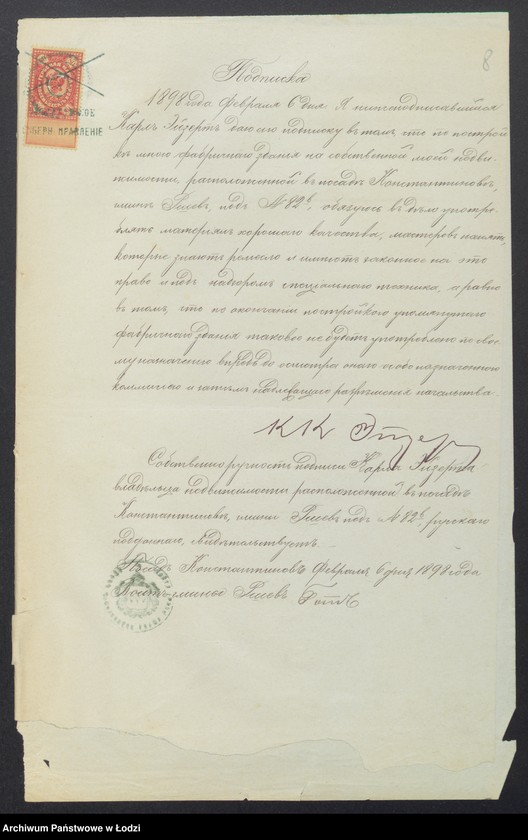 8
Подписка
1898 года Февраля 6 дня Я нижеподписавшийся
Карлъ Эйзертъ даю сію подписку въ томъ, что по построй
кѣ мною фабричнаго зданія на собственной моей недви
жимости, расположенной въ посадѣ Константиновѣ,
гмины Ршевъ, подъ № 82ᵇ, обязуюсь въ дѣло употре-
блять матеріалъ хорошаго качества, мастеровъ нанять,
которые знаютъ ремесло и имѣютъ законное на это
право и подъ надзоромъ спеціальнаго техника, а равно
въ томъ, что по окончаніи постройкою упомянутаго
фабричнаго зданія таковое не будетъ употреблено по свое
му назначенію впредь до осмотра онаго особо назначенною
коммиссіею и затѣмъ надлежащаго разрѣшенія начальства.
К К Эйзер
Собственноручность подписи Карла Эйзерта
владѣльца недвижимости расположенной въ посадѣ
Константиновѣ, гмины Ршевъ подъ № 82ᵇ, русскаго
подданнаго, свидѣтельствуетъ. —
Посадъ Константиновъ Февраля 6 дня 1898 года
Войтъ гмины Ршевъ
ГУБЕРН. ПРАВЛЕНІЕ
Archiwum Państwowe w Łodzi